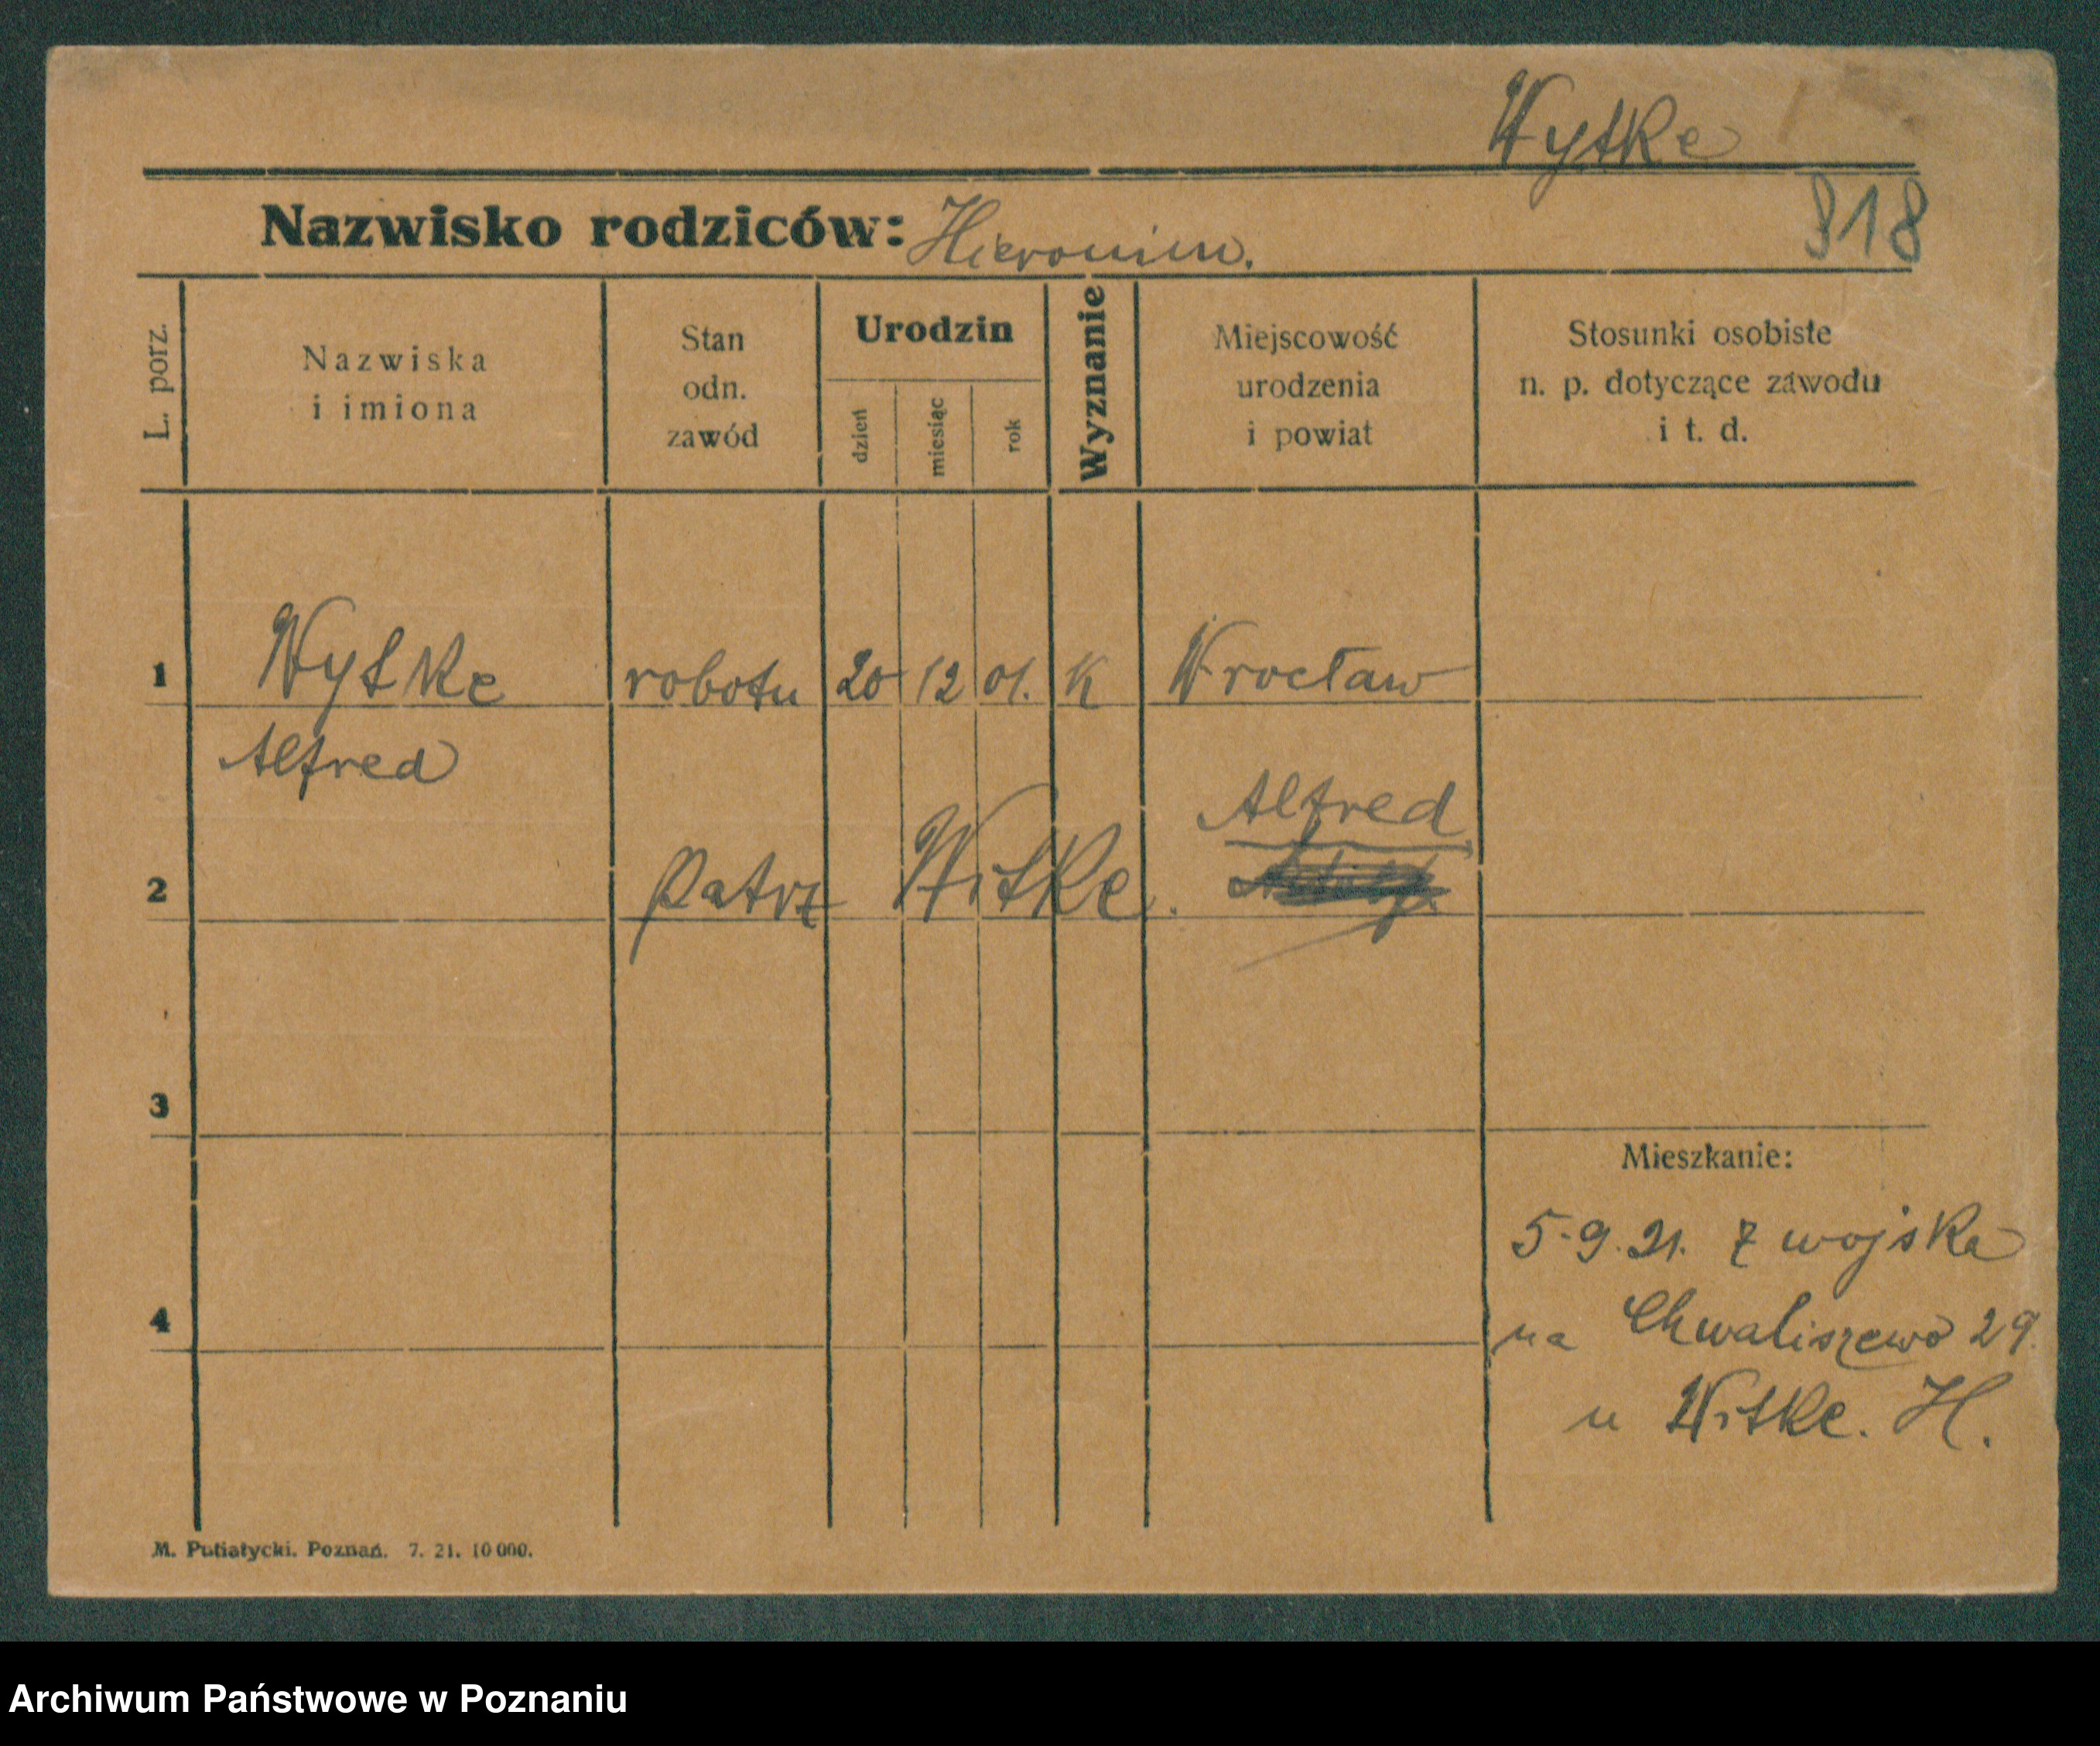 Wytke
Nazwisko rodziców: Hieronim.
818
L. porz.
Nazwiska
i imiona
Stan
odn.
zawód
Urodzin
dzień
miesiąc
rok
Wyznanie
Miejscowość
urodzenia
i powiat
Stosunki osobiste
n. p. dotyczące zawodu
i t. d.
1 Wytke robotn 20 12 01. K Wrocław
Alfred
Alfred
2 Patrz Witke.
3
Mieszkanie:
5.9.21. z wojska
4
na Chwaliszewo 29.
u Witke. H.
M. Putiatycki. Poznań. 7. 21. 10 000.
Archiwum Państwowe w Poznaniu